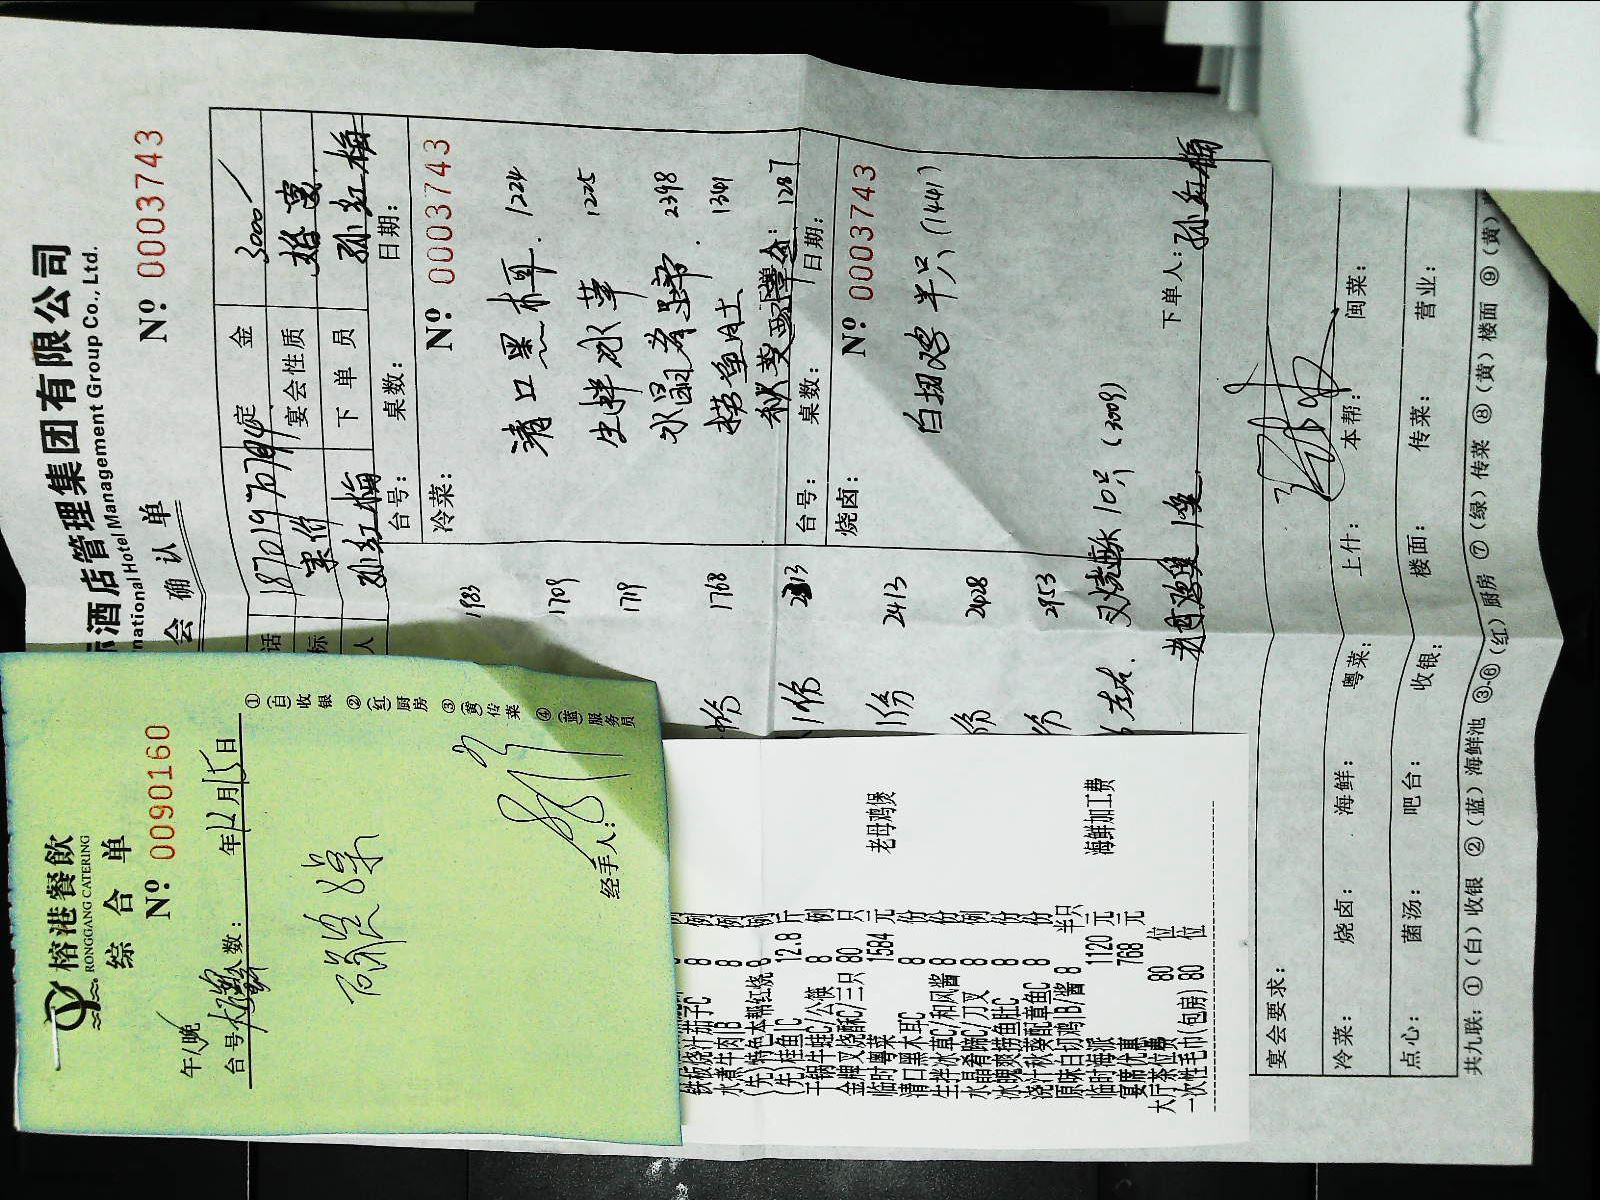 酒店管理集团有限公司
national Hotel Management Group Co., Ltd.
会 确 认 单
Nº 0003743
话 定 金 3000
标 宴会性质 婚宴
人 孙红梅 下 单 员 孙红梅
台号： 桌数： 日期：
冷菜： Nº 0003743
清口黑木耳 1224
生拌冰草 1225
水晶肴蹄 2398
捞鱼肚 1341
秋葵 1287
1933
1709
1719
1768
1份
1份 2413
份 2028
份 2953
左右
台号： 桌数： 日期：
烧卤： Nº 0003743
白切鸡半只 (1441)
叉烧酥10只 (3009)
下单人： 孙红梅
宴会要求：
冷菜： 烧卤： 海鲜： 粤菜： 上什： 本帮： 闽菜：
点心： 菌汤： 吧台： 收银： 楼面： 传菜： 营业：
共九联：①（白）收银 ②（蓝）海鲜池 ③-⑥（红）厨房 ⑦（绿）传菜 ⑧（黄）楼面 ⑨（黄）
榕港餐飲
RONGGANG CATERING
综 合 单
Nº 0090160
午/晚 年12月15日
台号 人数：
经手人：
①（白）收银
②（红）厨房
③（黄）传菜
④（蓝）服务员
铁板烧汁茄子C 8 例
水煮牛肉\B 8 例
(先)特色本帮红烧 8 例
(先)桂鱼\C 12.8 斤
干锅牛蛙C/公筷 8 例
金牌叉烧酥C/三只 80 只
临时粤菜 1584 元 老母鸡煲
清口黑木耳C 8 份
生拌冰草C/和风酱 8 份
水晶肴蹄C/刀叉 8 例
冰嗖爽捞鱼肚C 8 份
浇汁秋葵配章鱼C 8 份
原味白切鸡\B/酱 8 半只
临时海派 1120 元 海鲜加工费
宴席优惠 768 元
大厅茶位费 80 位
一次性毛巾(包房) 80 位